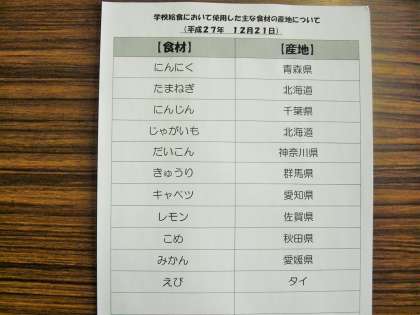 学校給食において使用した主な食材の産地について
（平成27年　12月21日）
【食材】　【産地】
にんにく　青森県
たまねぎ　北海道
にんじん　千葉県
じゃがいも　北海道
だいこん　神奈川県
きゅうり　群馬県
キャベツ　愛知県
レモン　佐賀県
こめ　秋田県
みかん　愛媛県
えび　タイ